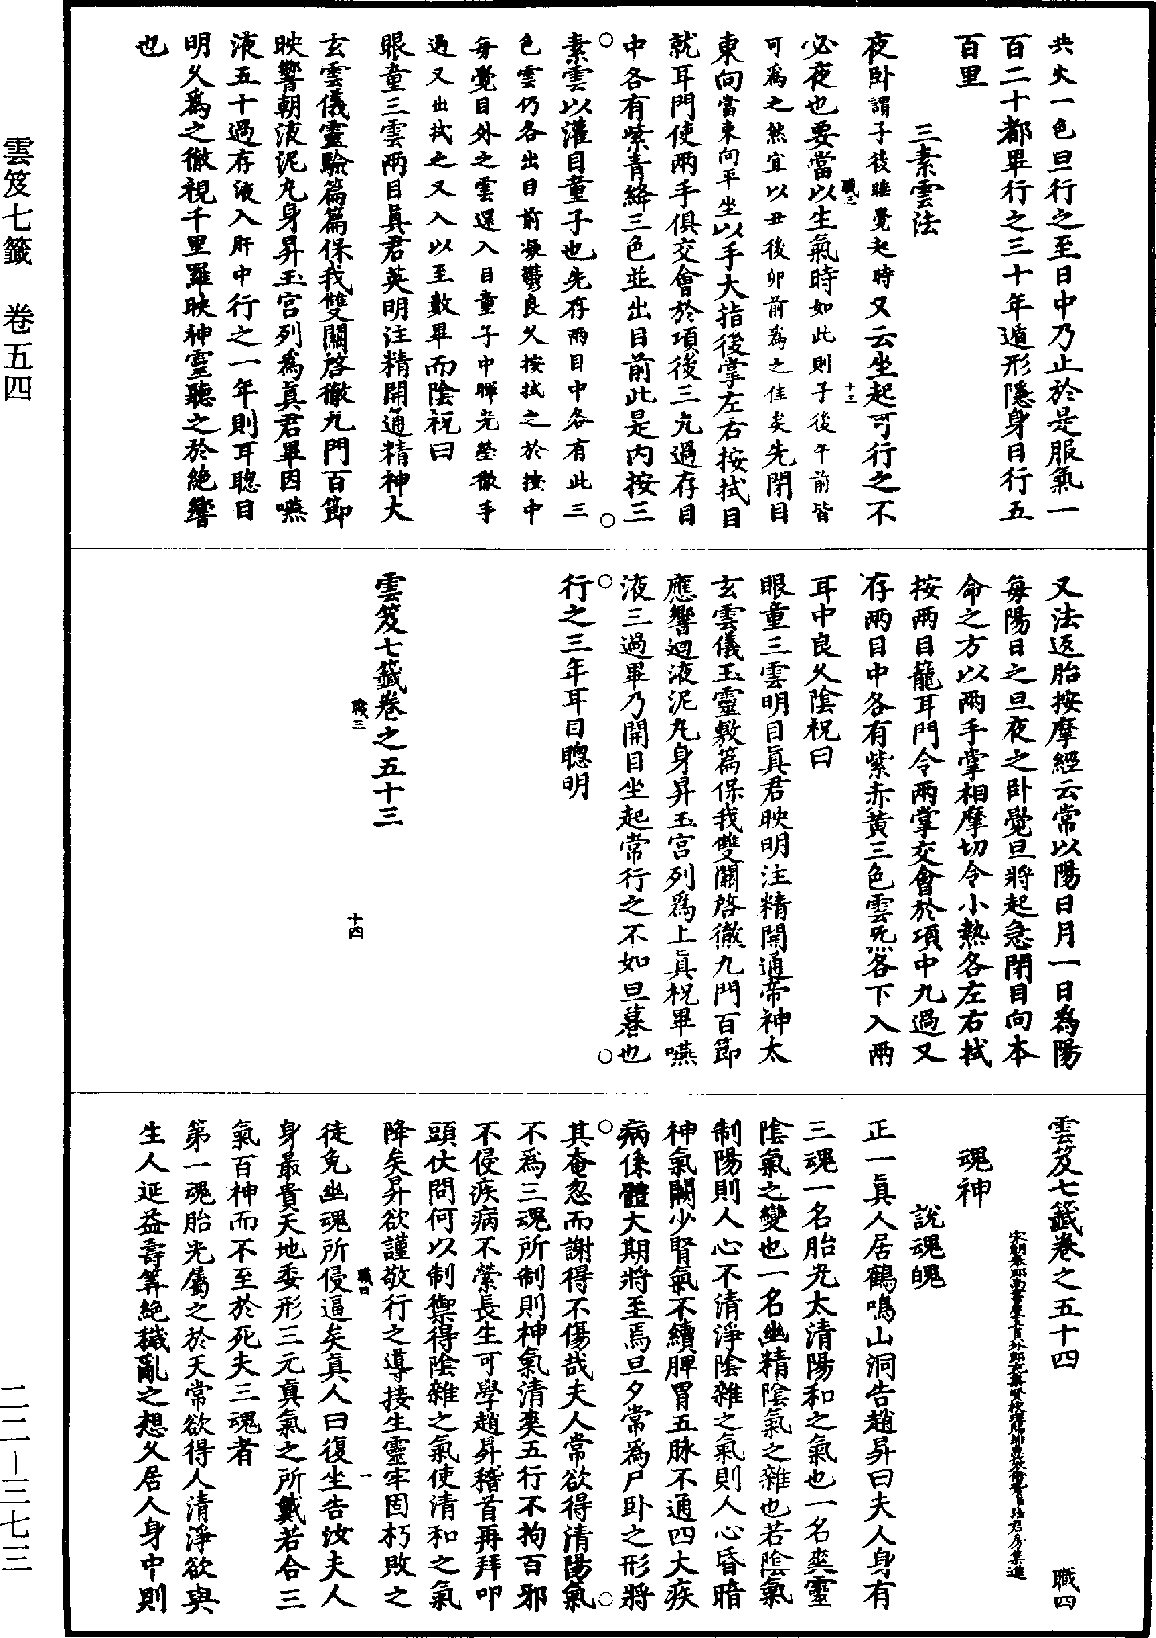 雲笈七籤 卷五四
二二—三七三
共火一色旦行之至日中乃止於是服氣一
百二十都畢行之三十年遁形隱身日行五
百里
三素雲法
夜卧謂子後睡覺起時又云坐起可行之不
必夜也要當以生氣時如此則子後午前皆
可爲之然宜以丑後卯前爲之佳矣先閉目
東向當東向平坐以手大指後掌左右按拭目
就耳門使兩手俱交會於項後三九過存目
中各有紫青絳三色並出目前此是内按三
素雲以灌目童子也先存兩目中各有此三
色雲仍各出目前凝鬱良久按拭之於按中
每覺目外之雲還入目童子中暉光瑩徹手
過又出拭之又入以至數畢而陰祝曰
眼童三雲兩目真君英明注精開通精神大
玄雲儀靈驗篇篇保我雙關啓徹九門百節
映響朝液泥丸身昇玉宮列爲真君畢因嚥
液五十過存液入肝中行之一年則耳聰目
明久爲之徹視千里羅映神靈聽之於絶響
也
職三
十三
又法返胎按摩經云常以陽日月一日爲陽
每陽日之旦夜之卧覺旦將起急閉目向本
命之方以兩手掌相摩切令小熱各左右拭
按兩目籠耳門令兩掌交會於項中九過又
存兩目中各有紫赤黄三色雲炁各下入兩
耳中良久陰祝曰
眼童三雲明目真君映明注精開通帝神太
玄雲儀玉靈敷篇保我雙關啓徹九門百節
應響迴液泥丸身昇玉宮列爲上真祝畢嚥
液三過畢乃開目坐起常行之不如旦暮也
行之三年耳目聰明
雲笈七籤卷之五十三
職三
十四
雲笈七籤卷之五十四
職四
魂神
說魂魄
正一真人居鶴鳴山洞告趙昇曰夫人身有
三魂一名胎光太清陽和之氣也一名爽靈
陰氣之變也一名幽精陰氣之雜也若陰氣
制陽則人心不清淨陰雜之氣則人心昏暗
神氣闕少腎氣不續脾胃五脉不通四大疾
病係體大期將至焉旦夕常爲尸卧之形將
其奄忽而謝得不傷哉夫人常欲得清陽氣
不爲三魂所制則神氣清爽五行不拘百邪
不侵疾病不縈長生可學趙昇稽首再拜叩
頭伏問何以制禦得陰雜之氣使清和之氣
降矣昇欲謹敬行之導接生靈牢固朽敗之
徒免幽魂所侵逼矣真人曰復坐告汝夫人
身最貴天地委形三元真氣之所戴若合三
氣百神而不至於死夫三魂者
第一魂胎光屬之於天常欲得人清淨欲與
生人延益壽筭絶穢亂之想久居人身中則
職四
一